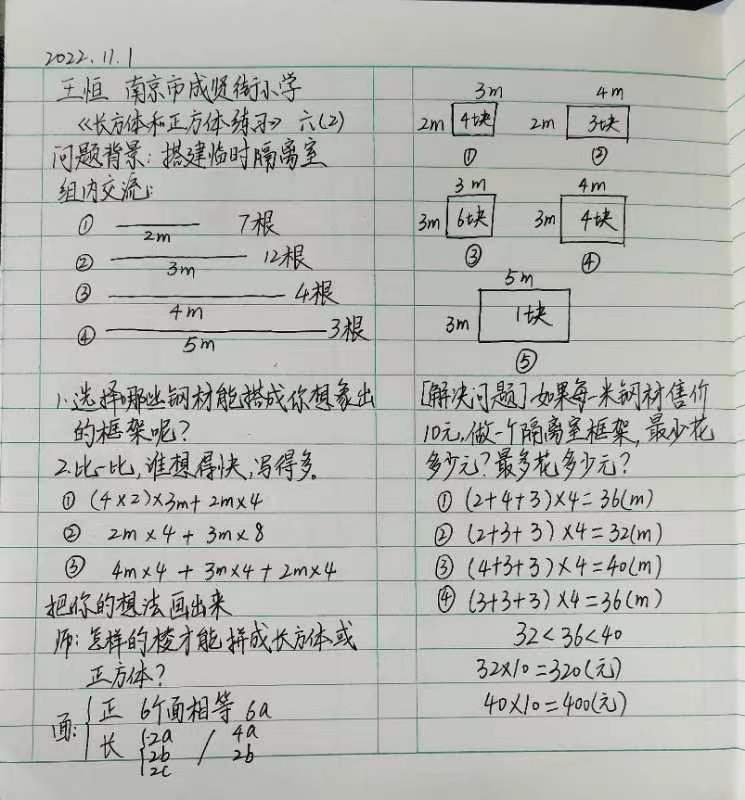 2022.11.1
王恒 南京市成贤街小学
《长方体和正方体练习》 六(2)
问题背景:搭建临时隔离室
组内交流:
① 2m 7根
② 3m 12根
③ 4m 4根
④ 5m 3根
1.选择哪些钢材能搭成你想象出
的框架呢?
2.比一比,谁想得快,写得多。
① (4×2)×3m+2m×4
② 2m×4+3m×8
③ 4m×4+3m×4+2m×4
把你的想法画出来
师:怎样的棱才能拼成长方体或
正方体?
面:
正 6个面相等 6a
长 2a / 4a
2b 2b
2c
3m 4m
2m 4块 2m 3块
① ②
3m 4m
3m 6块 3m 4块
③ ④
5m
3m 1块
⑤
[解决问题]如果每一米钢材售价
10元,做一个隔离室框架,最少花
多少元?最多花多少元?
① (2+4+3)×4=36(m)
② (2+3+3)×4=32(m)
③ (4+3+3)×4=40(m)
④ (3+3+3)×4=36(m)
32<36<40
32×10=320(元)
40×10=400(元)